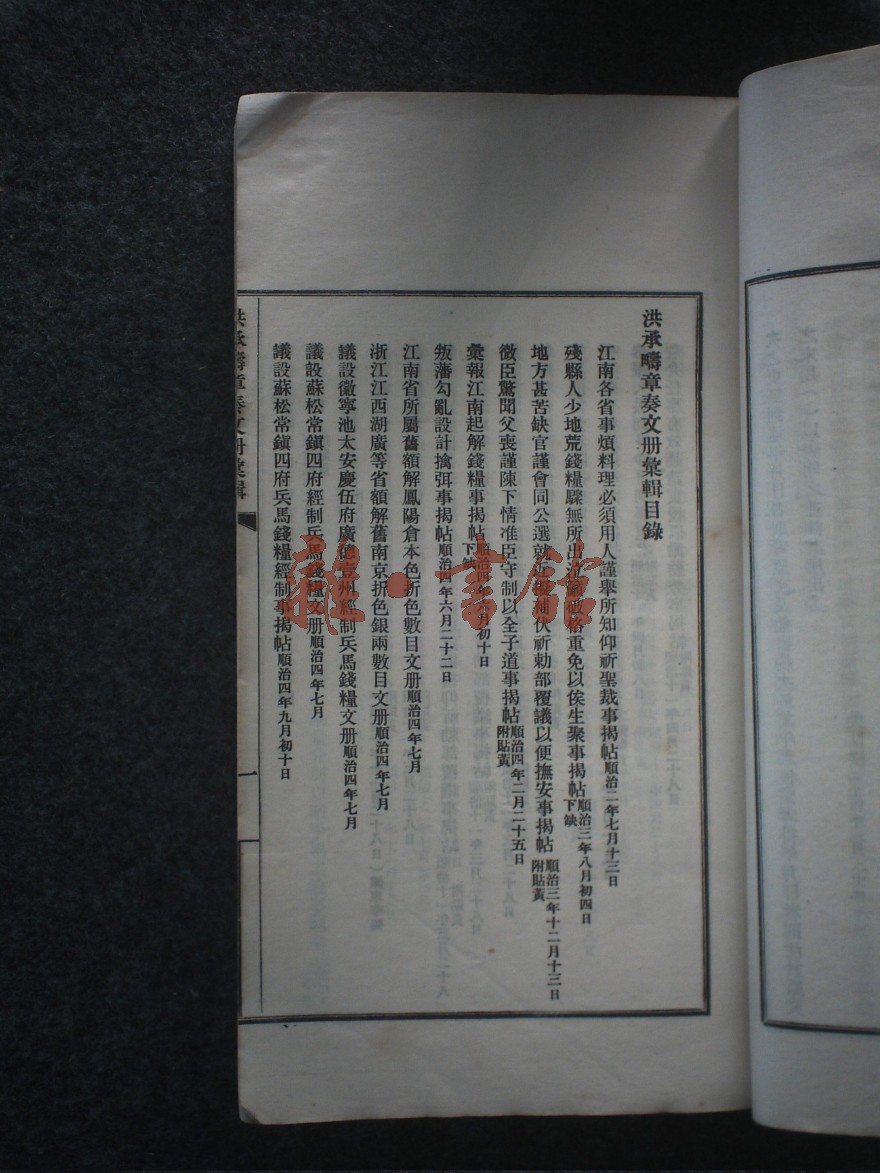 洪承疇章奏文册彙輯目錄
江南各省事煩料理必須用人謹舉所知仰祈聖裁事揭帖順治二年七月十三日
殘縣人少地荒錢糧驟無所出 破格重免以俟生聚事揭帖順治三年八月初四日下缺
地方甚苦缺官謹會同公選就近 補伏祈勅部覆議以便撫安事揭帖順治三年十二月十三日附貼黃
微臣驚聞父喪謹陳下情准臣守制以全子道事揭帖順治四年二月二十五日附貼黃
彙報江南起解錢糧事揭帖順治四年六月初十日下缺
叛藩勾亂設計擒弭事揭帖順治四年六月二十二日
江南省所屬舊額解鳳陽倉本色折色數目文册順治四年七月
浙江江西湖廣等省額解舊南京折色銀兩數目文册順治四年七月
議設徽寧池太安慶伍府廣德宣州經制兵馬錢糧文册順治四年七月
議設蘇松常鎮四府經制兵馬錢糧文册順治四年七月
議設蘇松常鎮四府兵馬錢糧經制事揭帖順治四年九月初十日
洪承疇章奏文册彙輯
一
龍·書館